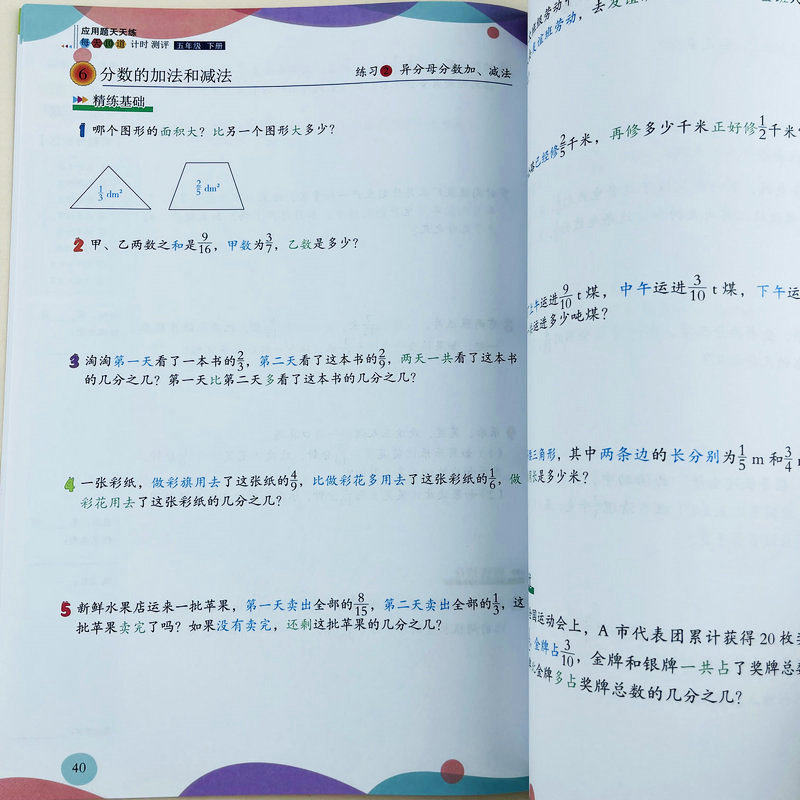 应用题天天练
每天10道 计时测评 五年级 下册
6 分数的加法和减法 练习2 异分母分数加、减法
精练基础
1 哪个图形的面积大？比另一个图形大多少？
1/3 dm² 2/5 dm²
2 甲、乙两数之和是9/16，甲数为3/7，乙数是多少？
3 淘淘第一天看了一本书的2/3，第二天看了这本书的2/9，两天一共看了这本书
的几分之几？第一天比第二天多看了这本书的几分之几？
4 一张彩纸，做彩旗用去了这张纸的4/9，比做彩花多用去了这张彩纸的1/6，做
彩花用去了这张彩纸的几分之几？
5 新鲜水果店运来一批苹果，第一天卖出全部的8/15，第二天卖出全部的1/3，这
批苹果卖完了吗？如果没有卖完，还剩这批苹果的几分之几？
40
班劳动
友谊班劳动，去友谊
已经修2/5千米，再修多少千米正好修1/2千米
午运进9/10 t 煤，中午运进3/10 t 煤，下午运
运进多少吨煤？
三角形，其中两条边的长分别为1/5 m 和3/4
长是多少米？
国运动会上，A 市代表团累计获得 20 枚奖
金牌占3/10，金牌和银牌一共占了奖牌总数
比金牌多占奖牌总数的几分之几？